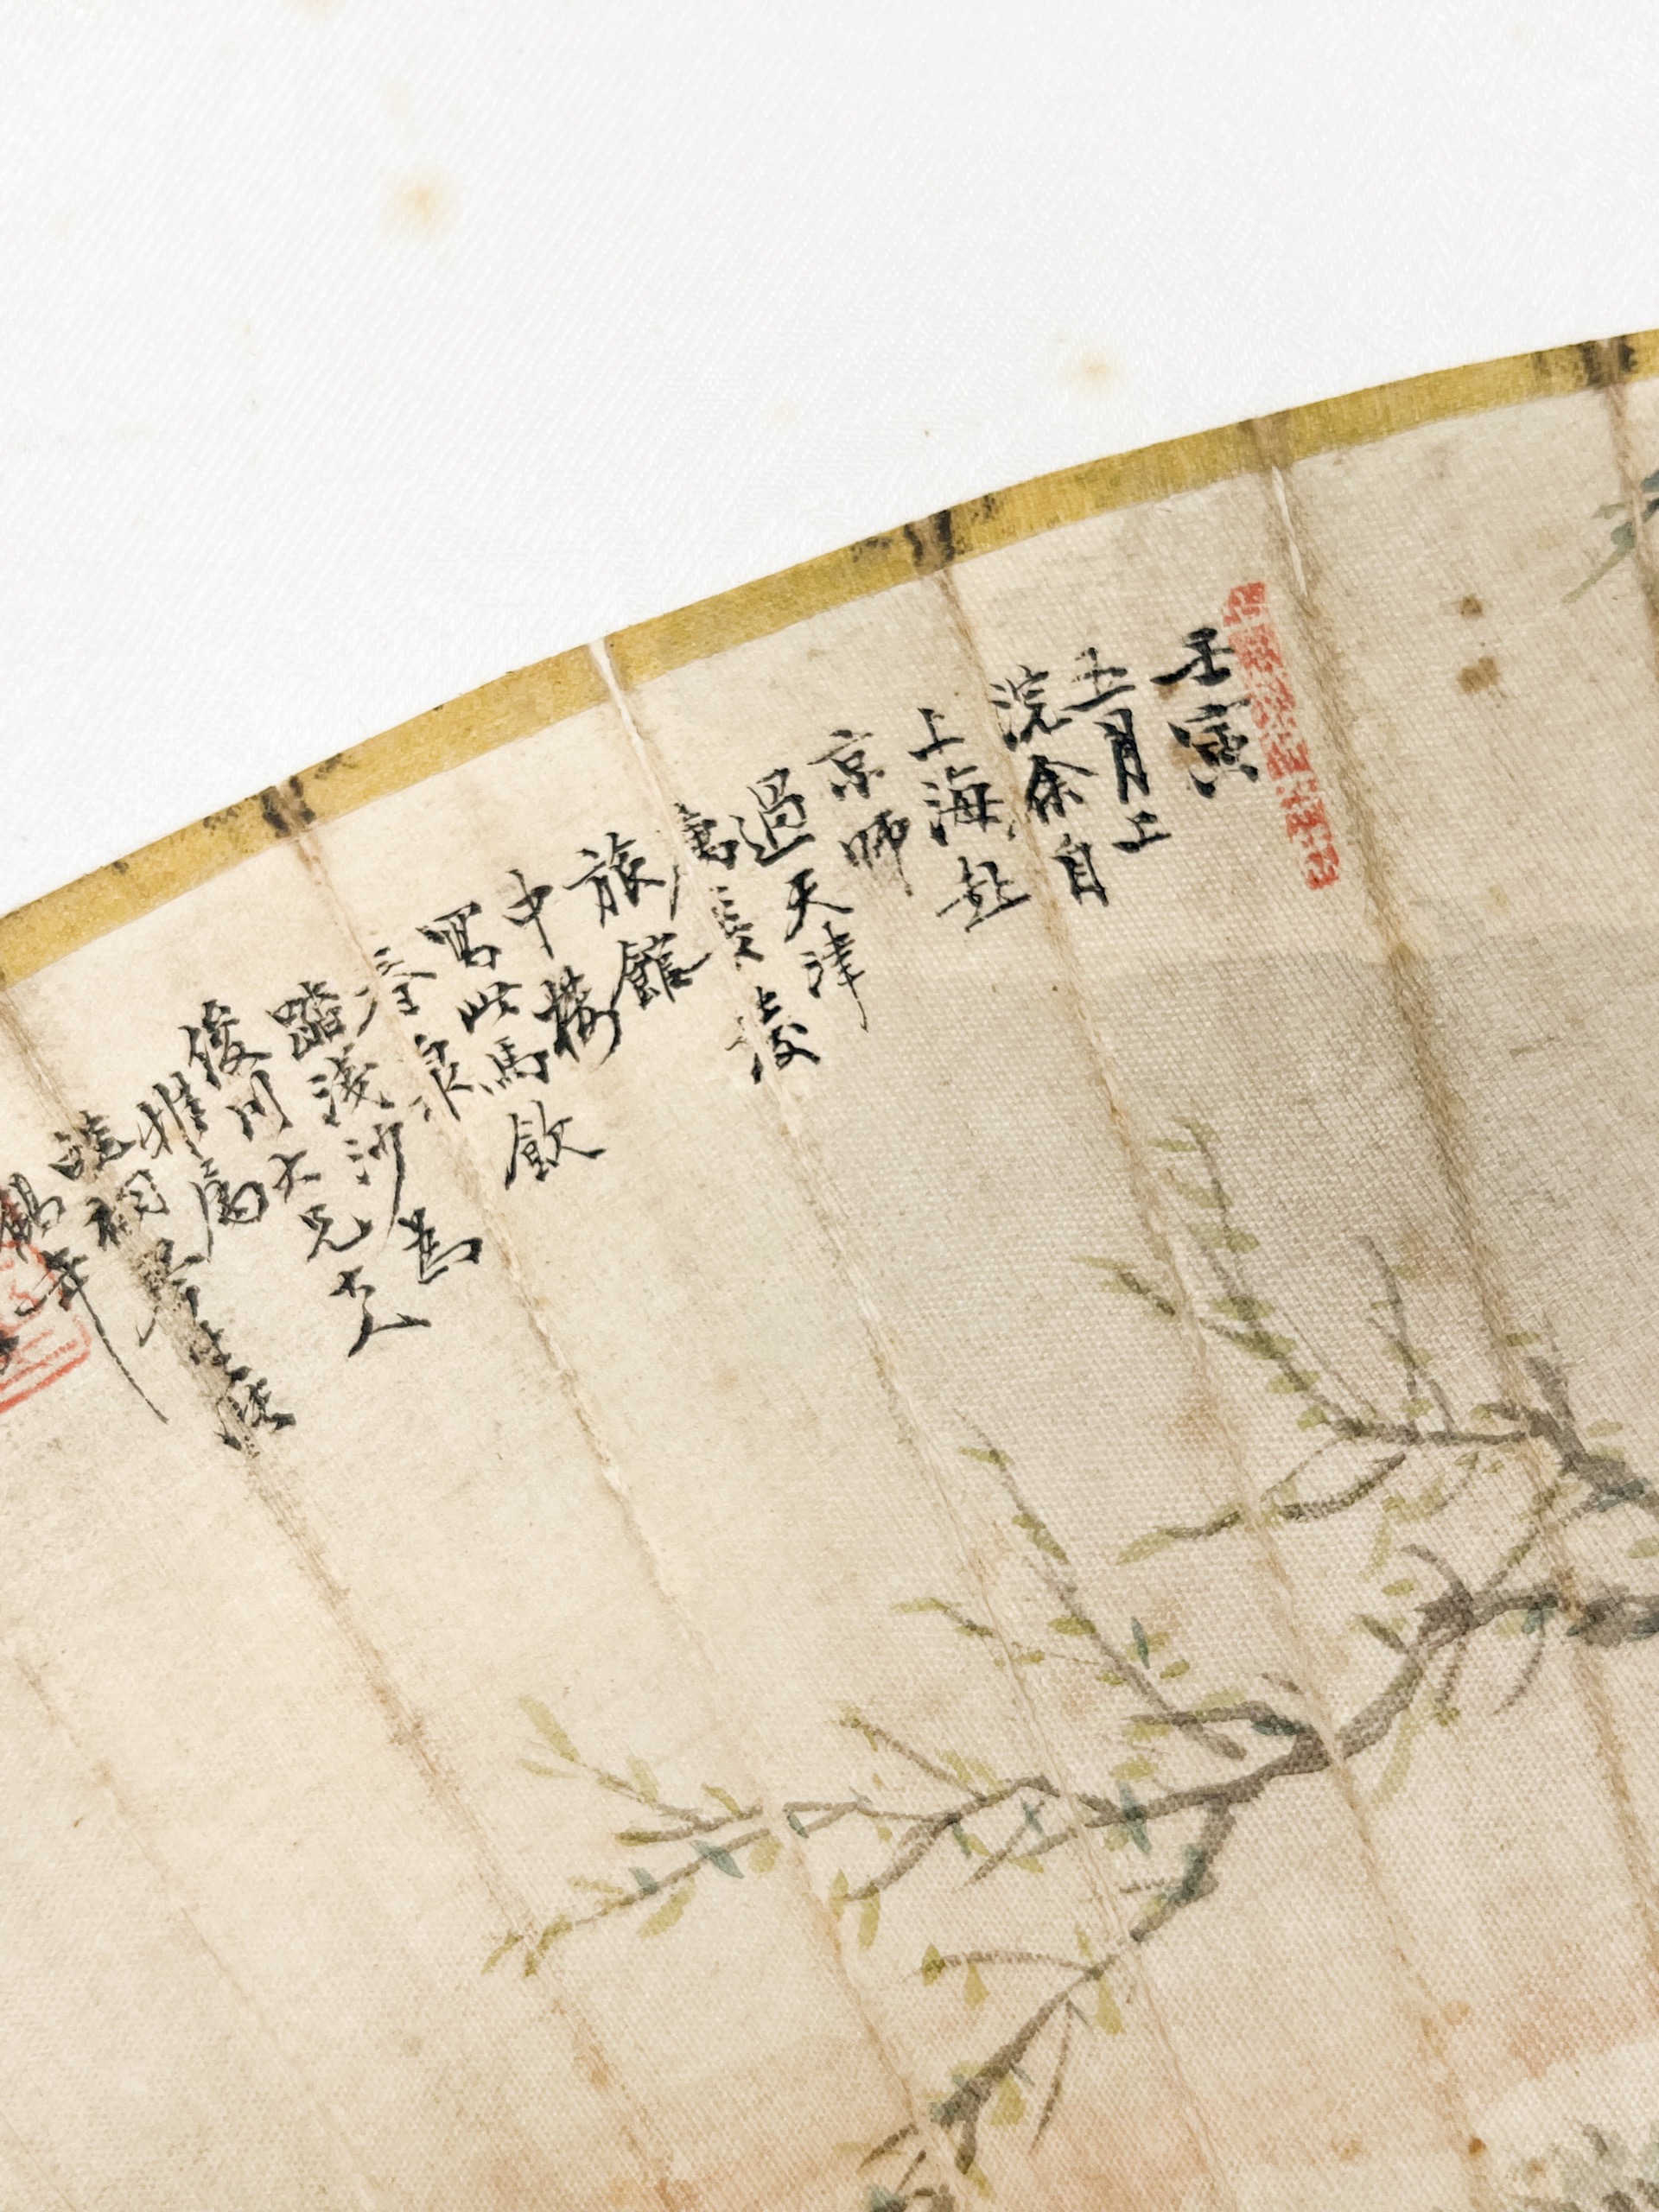 壬寅
五月上
浣余自
上海赴
京師
過天津
寓長發
旅館
中樓
寫此馬飲
春泉
踏淺沙為
俊川大兄大人
雅屬
祖
鶴年